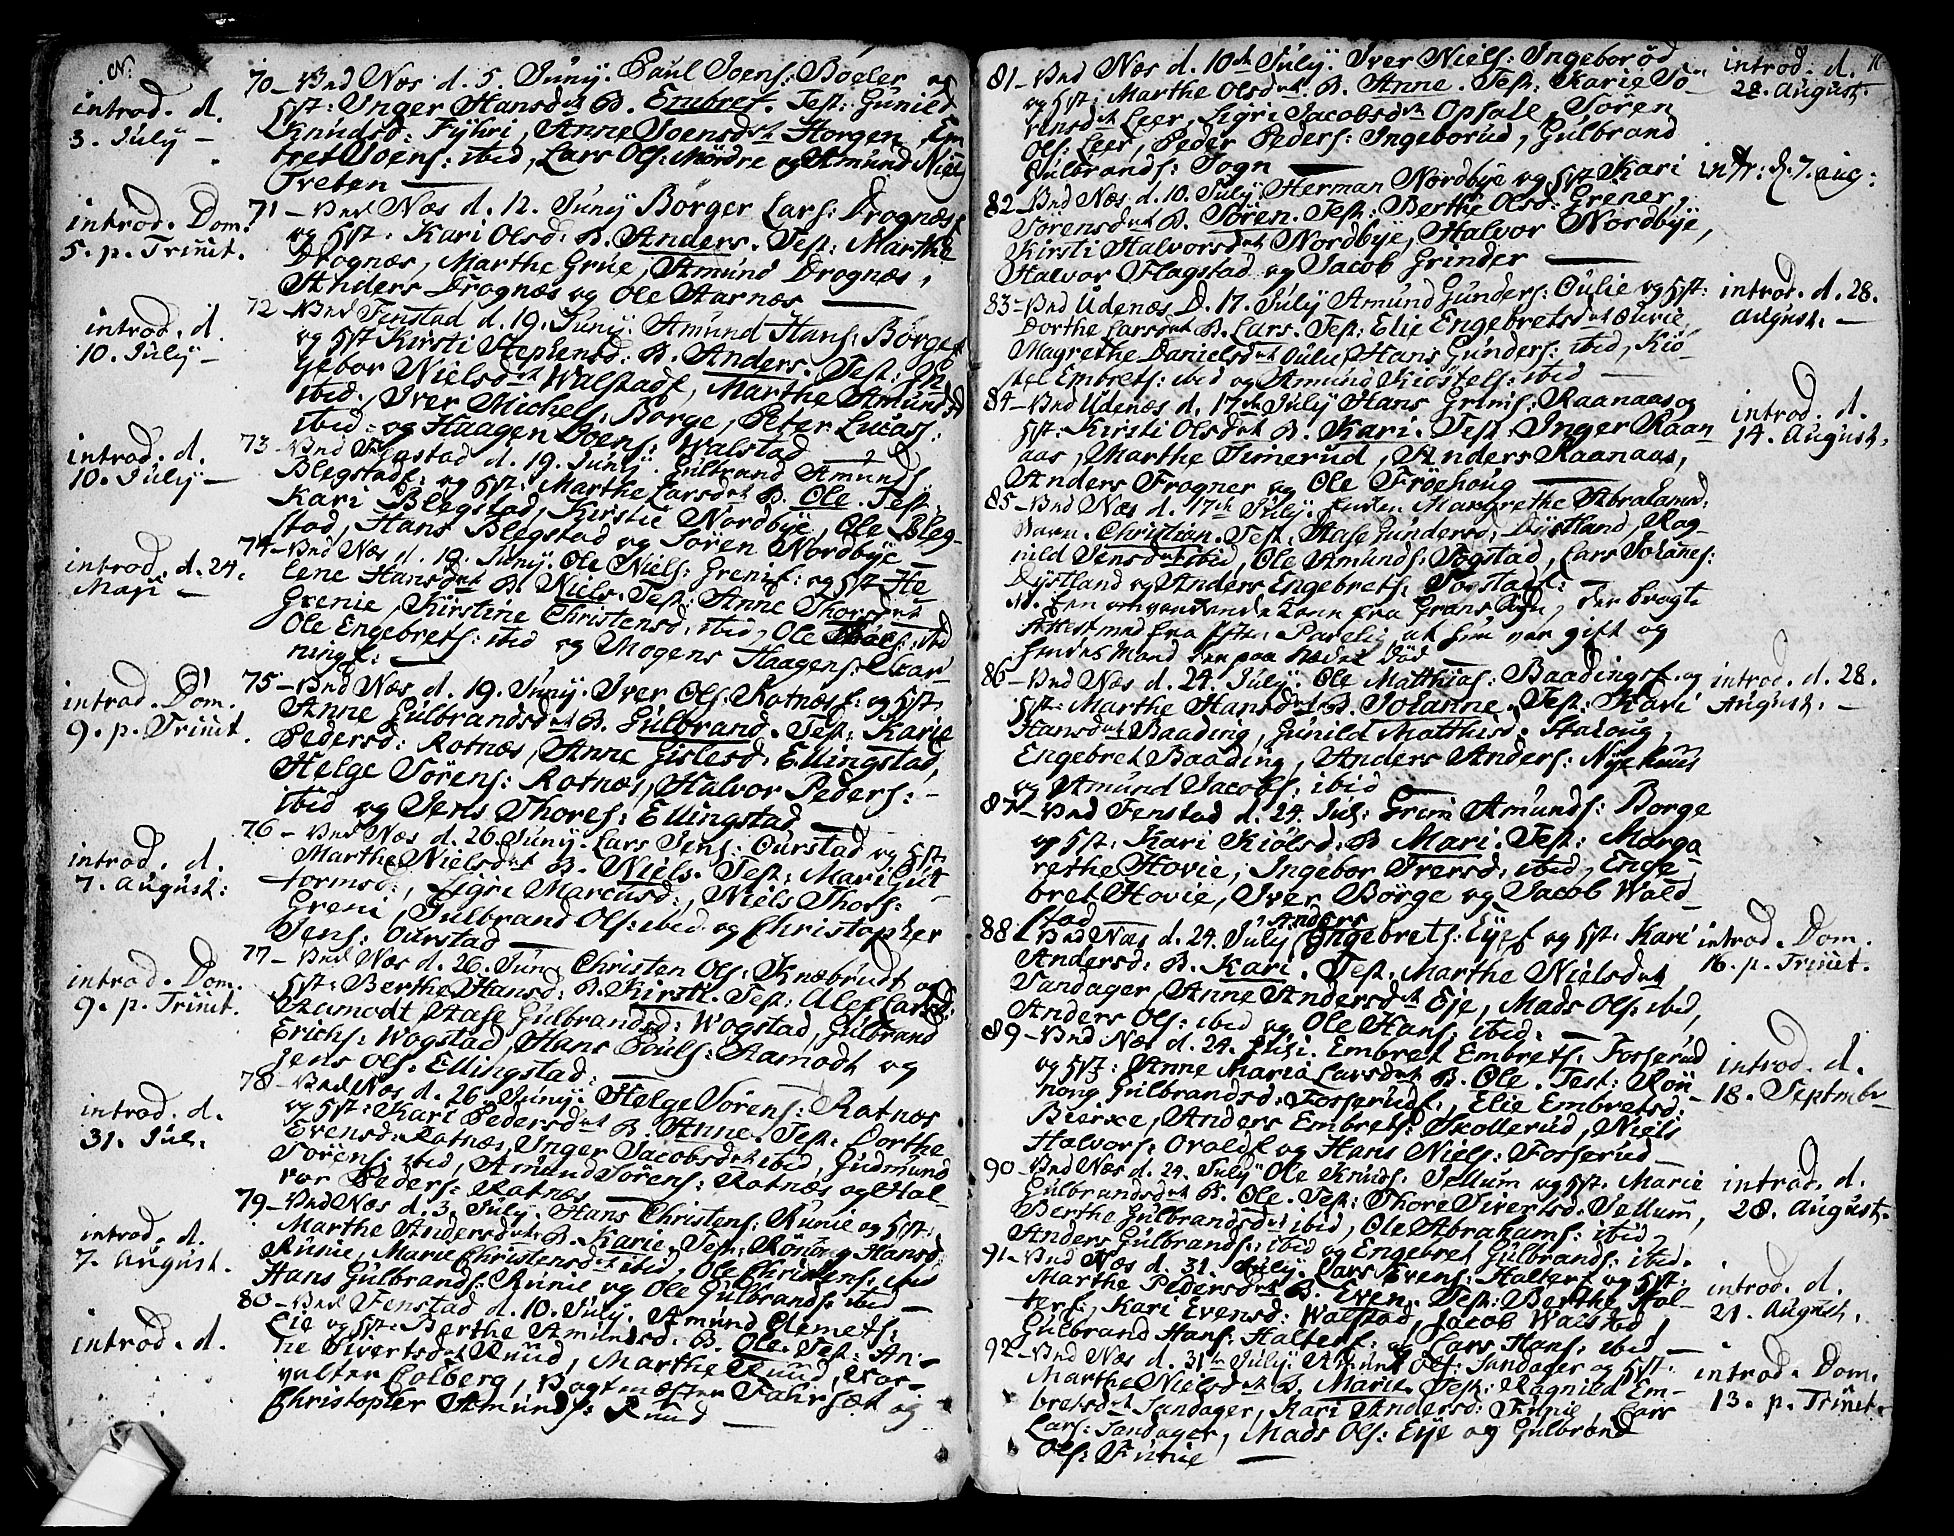 N:
introd. d.
3. July —
70 — Ved Næs d. 5. Juny. Paul Joens: Boeler og
Hst: Inger Hansdat B. Embret. Test: Gunild
Knudsd: Fyhri, Anne Joensdat Horgen, Em
bret Joens: ibid, Lars Ols: Mørdre og Amund Niels
Treten —
introd. Dom.
5. p. Trinit.
71 — Ved Næs d. 12. Juny Børger Lars: Drognæs
og Hst: Kari Olsd: B. Anders. Test: Marthe
Drognæs, Marthe Grue, Amund Drognæs,
Anders Drognæs og Ole Aarnæs —
introd. d.
10. July —
72 Ved Fenstad d. 19. Juny. Amund Hans: Børge
og Hst Kirsti Stephensd: B. Anders. Test: In
gebor Nielsdat Walstad, Marthe Amundsd
ibid., Iver Michels: Borge, Peter Lucas:
ibid: og Haagen Joens: Walstad
introd. d.
10. July —
73 — Ved Fenstad d. 19. Juny. Gulbrand Amunds:
Blegstad: og Hst: Marthe Larsdat B. Ole. Test:
Kari Blegstad, Kirstie Nordbye, Ole Bleg-
stad, Hans Blegstad og Søren Nordbye —
introd. d. 24.
Maji —
74 — Ved Næs d. 19. Juny. Ole Niels: Grenie: og Hst He
lene Hansdat B. Niels. Test: Anne Thorsdat
Grenie, Kirstine Christensd: ibid, Ole Thors: ibid
Ole Engebrets: ibid og Mogens Haagens:
ningf: —
introd. Dom.
9. p. Trinit.
75 — Ved Næs d. 19. Juny. Iver Ols: Rotnæs og Hst.
Anne Gulbrandsdat B. Gulbrand. Test: Karie
Pedersd: Rotnæs, Anne Gislesd: Ellingstad,
Helge Sørens: Rotnæs, Halvor Peders: —
ibid og Jens Thores: Ellingstad —
introd. d.
7. August:
76 — Ved Næs d. 26. Juny. Lars Jens: Ourstad og Hst.
Marthe Nielsdat B. Niels. Test: Mari Gut-
tormsd:, Sigri Marcusd:, Niels Thors:
Greni, Gulbrand Ols: ibid og Christopher
Jens: Ourstad —
introd. Dom.
9. p. Trinit.
77 — Ved Næs d. 26. Juny Christen Ols: Knebrudt og
Hst: Berthe Hansd: B. Kirsti. Test:
Aamodt Aase Gulbrandsd: Wogstad, Gulbrand
Erichs: Wogstad, Hans Pouls: Aamodt og
Jens Ols: Ellingstad: —
introd. d.
31. Jul.
78 — Ved Næs d. 26. Juny. Helge Sørens: Rotnæs
og Hst: Kari Pedersdat B. Anne. Test: Dorthe
Evensdat Rotnæs, Inger Jacobsdat ibid, Gudmund
Sørens: ibid, Amund Sørens: Rotnæs og Hal-
vor Peders: Rotnæs
introd. d.
7. August.
79 — Ved Næs d. 3. July. Hans Christens: Runie og Hst:
Marthe Andersdat B. Karie. Test: Rønnog Hansd
Runie, Marie Christensdat ibid, Ole Christens: ibid
Hans Gulbrands: Runie og Ole Gulbrands: ibid —
introd. d.
80 — Ved Fenstad d. 10. July. Amund Clemets:
Eie og Hst: Berthe Amundsd. B. Ole. Test: An-
ne Sivertsdat Ruud, Marthe Ruud, Cor-
Colberg, Vagtmæster Fahrsæt og
Christopher Amunds: Ruud —
81 — Ved Næs d. 10de July. Iver Niels: Ingeborød
og Hst: Marthe Olsdat B. Anne. Test: Karie Sø-
rensdat Leer, Sigri Jacobsdat Opsale, Søren
Ols: Leer, Peder Peders: Ingeborud, Gulbrand
Gulbrands: Sogn —
introd. d.
28. August:
82 Ved Næs d. 10. July Herman Nordbye og Hst Kari
Sørensdat B. Søren. Test: Berthe Olsd: Grener,
Kirsti Halvorsdat Nordbye, Halvor Nordbye,
Halvor Flagstad og Jacob Grinder —
intr: d. 7. Aug:
83 — Ved Udenæs D. 17. July Amund Gunders: Oulie og Hst:
Dorthe Larsdat B. Lars. Test: Elie Engebretsdat Ourie
Magrethe Danielsdat Oulie, Hans Gunders: ibid, Kiø-
stel Embrets: ibid og Amund Kiøstels: ibid —
introd. d. 28.
August. —
84 — Ved Udenæs d. 17de July Hans Grims: Raanaas og
Hst: Kirsti Olsdat B. Kari. Test. Inger Raan
aas, Marthe Timerud, Anders Raanaas,
Anders Frogner og Ole Frøehoug —
introd. d.
14. August.
85 — Ved Næs d. 17de July. Magrethe Abrahamsd:
Barn. Christian. Test: Aase Gundersd: Dystland, Rag
nild Jensdat ibid, Ole Amunds: Togstad, Lars Johannes:
Dystland og Anders Engebrets: Togstad: —
N. Een omvandrende fra Grans Præg, der bragte
Attest med fra Hr: at hun var gift og
hendes Mand død
86 — Ved Næs d. 24. July. Ole Matthias: Baadingsf. og
Hst: Marthe Hansdat B. Johanne. Test: Kari
Hansdat Baading, Gunild Matthisd: Haloug,
Engebret Baading, Anders Anders: Nyehuus
og Amund Jacobs: ibid —
introd. d. 28.
August. —
87 — Ved Fenstad d. 24. Jul: Grim Amunds: Borge
og Hst: Kari Kiølsd: B Mari. Test: Marga
rethe Hovie, Ingebor Iversd: ibid, Enge
bret Hovie, Iver Børge og Jacob Wald
stad
88 — Ved Næs d. 24. July Anders Engebrets: Eye og Hst: Kari
Andersd: B. Kari. Test. Marthe Nielsdat
Sandager, Anne Andersdat Eje, Mads Ols: ibid,
Anders Ols: ibid og Ole Hans: ibid: —
introd. Dom.
16. p. Trinit.
89 — Ved Næs d. 24. Embret Embrets: Fosserud
og Hst: Anne Maria Larsdat B. Ole. Test: Røn
nong Gulbrandsd: Fosserud:, Elie Embretsd:
Bierke, Anders Embrets: Skollerud, Niels
Halvors: Ovald og Hans Niels: Fosserud
introd. d.
18. Septmbr
90 — Ved Næs d. 24. July Ole Knuds: Sellum og Hst. Marie
Gulbrandsdat B. Ole. Test: Thore Sivertsd. Sellum,
Berthe Gulbrandsdat ibid, Ole Abrahams: ibid,
Anders Gulbrands: ibid og Engebret Gulbrands: ibid.
introd. d.
28. August.
91 — Ved Næs d. 31. July. Lars Evens: Halter og Hst:
Marthe Pedersdat B. Even. Test: Berthe Hal-
ter, Kari Evensd: Walstad, Jacob Walstad,
Gulbrand Hans: Halter: og Lars Hans: ibid —
introd. d.
21. August.
92 — Ved Næs d. 31te July. Amund Ols: Sandager og Hst:
Marthe Nielsdat B. Marie. Test: Ragnild Em-
bretsdat Sandager, Kari Andersd: Funie, Lars
Lars: Sandager, Mads Ols: Eye og Gulbrand
Ols: Funie —
introd. Dom.
13. p. Trinit.